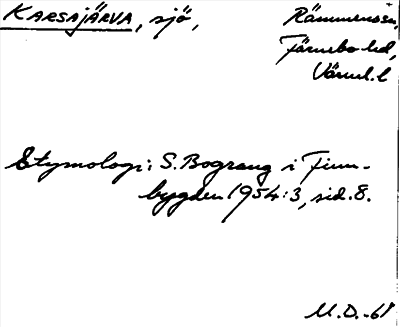 KARSAJÄRVA, sjö, Rämmens sn,
Färnebo hd,
Värml. l
Etymologi: S. Bograng i Finn-
bygden 1954:3, sid. 8.
M.D.-61